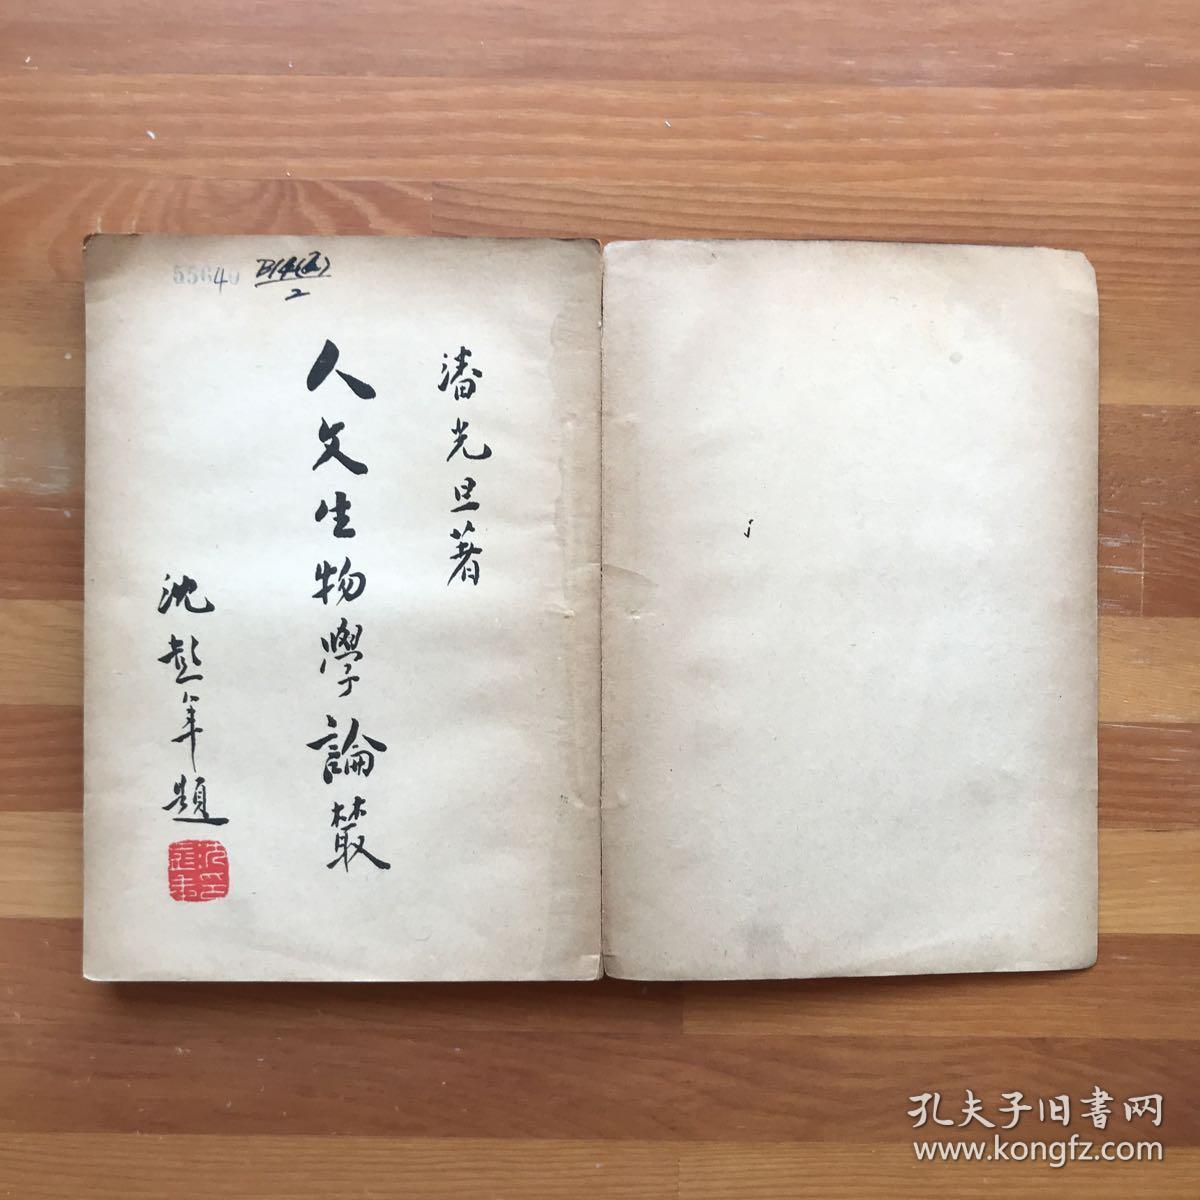 55640
B14(2)
2
潘光旦著
人文生物學論叢
沈彭年題
孔夫子旧書网
www.kongfz.com